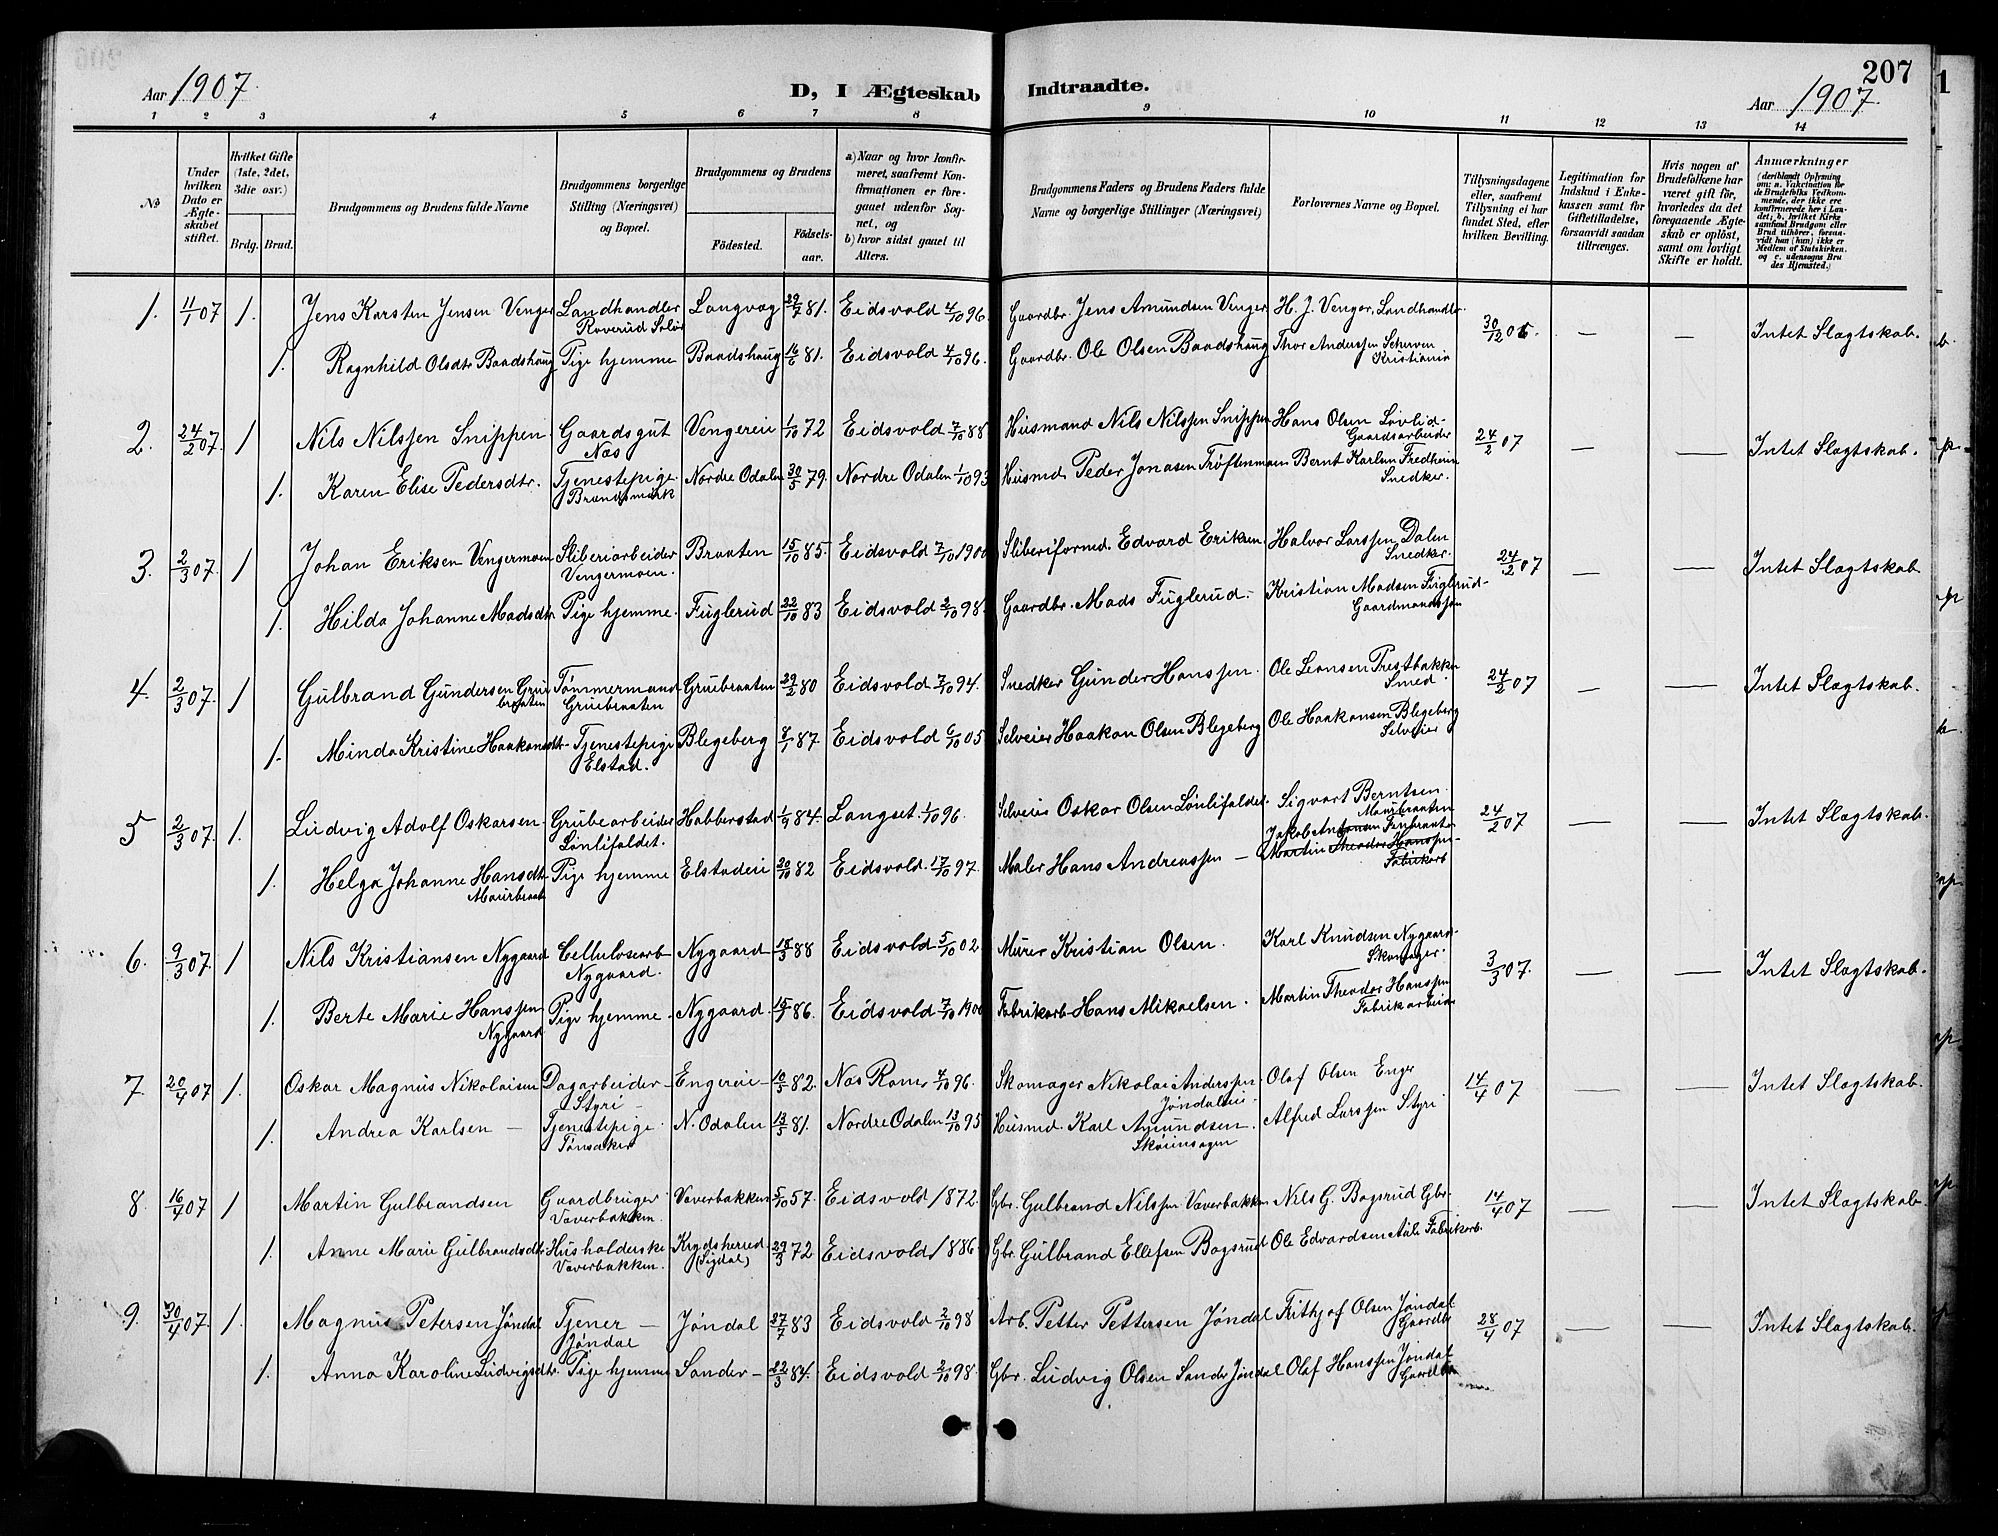 207
Aar 1907. D, I Ægteskab Indtraadte. Aar 1907.
1 2 3 4 5 6 7 8 9 10 11 12 13 14
No
Under hvilken Dato er Ægteskabet stiftet.
Hvilket Gifte (1ste, 2det, 3die osv.)
Brdg. Brud.
Brudgommens og Brudens fulde Navne
Brudgommens borgerlige Stilling (Næringsvei) og Bopæl.
Brudgommens og Brudens
Fødested. Fødselsaar.
a) Naar og hvor konfirmeret, saafremt Konfirmationen er foregaaet udenfor Sognet, og
b) hvor sidst gaaet til Alters.
Brudgommens Faders og Brudens Faders fulde Navne og borgerlige Stillinger (Næringsvei)
Forlovernes Navne og Bopæl.
Tillysningsdagene eller, saafremt Tillysning ei har fundet Sted, efter hvilken Bevilling.
Legitimation for Indskud i Enkekassen samt for Giftetilladelse, forsaavidt saadan tiltrænges.
Hvis nogen af Brudefolkene har været gift før, hvorledes da det foregaaende Ægteskab er opløst, samt om lovligt Skifte er holdt.
Anmærkninger (deriblandt Oplysning om: a. Vakcination for de Brudefolks Vedkommende, der ikke ere konfirmerede her i Landet; b. hvilket Kirkesamfund Brudgom eller Brud tilhører, forsaavidt han (hun) ikke er Medlem af Statskirken, og c. udensogns Brudes Hjemsted.)
1. 11/1 07 1. Jens Karsten Jensen Venger Landhandler Roverud Solør Langvag 29/7 81. Eidsvold 4/10 96. Gaardbr. Jens Amundsen Venger H. J. Venger, Landhandler 30/12 06. — — Intet Slægtskab.
1. Ragnhild Olsdtr Baadshaug Pige hjemme Baadshaug 16/6 81. Eidsvold 4/10 96. Gaardbr. Ole Olsen Baadshaug Thor Anderssen Scherven Kristiania
2. 24/2 07 1 Nils Nilssen Snippen Gaardsgut Næs Vengereie 1/10 72 Eidsvold 7/10 88 Husmand Nils Nilssen Snippen Hans Olsen Løvlid Gaardsarbeider 24/2 07 — — Intet Slægtskab.
1. Karen Elise Pedersdtr. Tjenestepige Brandsmark Nordre Odalen 30/5 79. Nordre Odalen 1/10 93 Husmd Peder Jonasen Trøftenmoen Bernt Karlsen Fredheim Snedker.
3. 2/3 07. 1 Johan Eriksen Vengermoen Sliberiarbeider Vengermoen. Braaten 15/10 85. Eidsvold 7/10 1900 Sliberiformd. Edvard Eriksen. Halvor Larssen Dalen Snedker. 24/2 07 — — Intet Slægtskab
1. Hilda Johanne Madsdtr. Pige hjemme. Fuglerud 22/10 83 Eidsvold 2/10 98. Gaardbr. Mads Fuglerud. Kristian Madsen Fuglerud Gaardmandssøn
4. 2/3 07. 1 Gulbrand Gundersen Gruebraaten Tømmermand Gruebraaten Gruebraaten 29/2 80 Eidsvold 7/10 94. Snedker Gunder Hanssen. Ole Larsen Prestbakken Smed 24/2 07 — — Intet Slægtskab.
1. Minda Kristine Haakonsdtr. Tjenestepige Elstad. Blegeberg 8/1 87. Eidsvold 6/10 05 Selveier Haakon Olsen Blegeberg Ole Haakonsen Blegeberg Selveier
5 2/3 07. 1. Ludvig Adolf Oskarsen Grubearbeider Lønlifaldet. Habberstad 1/9 84. Langset. 1/10 96. Selveier Oskar Olsen Lønlifaldet. Sigvart Berntsen Maurbraaten 24/2 07 — — Intet Slægtskab.
1. Helga Johanne Hansdtr Maurbraaten Pige hjemme Elstadeie 20/10 82 Eidsvold. 17/10 97. Maler Hans Andreassen — Jakob Antonsen Furubraaten Martin Theodor Hanssen Fabrikarb
6. 9/3 07. 1 Nils Kristiansen Nygaard Cellulosearb Nygaard. Nygaard 18/3 88 Eidsvold 5/10 02. Murer Kristian Olsen. Karl Knudsen Nygaard Skomager. 3/3 07. — — Intet Slægtskab.
1. Berte Marie Hanssen Nygaard Pige hjemme Nygaard. 15/9 86. Eidsvold 7/10 1900 Fabrikarb Hans Mikaelsen. Martin Theodor Hanssen Fabrikarbeider
7. 20/4 07 1. Oskar Magnus Nikolaisen Dagarbeider Styri Engereie 10/5 82. Næs Rome. 4/10 96. Skomager Nikolai Anderssen Jøndaleie. Olaf Olsen Enger 14/4 07 — — Intet Slægtskab.
1. Andrea Karlsen — Tjenestepige Tønsaker N. Odalen 13/5 81. Nordre Odalen 13/10 95 Husmd. Karl Amundsen. Skøiensagen Alfred Larssen Styri.
8. 16/4 07 1 Martin Gulbrandsen Gaardbruger Væverbakken. Væverbakken 5/10 57. Eidsvold 1872. Gbr. Gulbrand Nilssen Væverbakken Nils G. Bogsrud Gbr. 14/4 07 — — Intet Slægtskab.
1. Anne Marie Gulbrandsdtr Husholderske Væverbakken. Krydsherred (Sigdal) 29/3 72 Eidsvold 1886 Gbr. Gulbrand Ellefsen Bogsrud Ole Edvardsen Fabrikarb.
9. 30/4 07 1. Magnus Petersen Jøndal Tjener — Jøndal Jøndal 27/7 83 Eidsvold 2/10 98 Arb. Petter Pettersen Jøndal Frithjof Olsen Jøndal Gaardbr 28/4 07 — — Intet Slægtskab.
1. Anna Karoline Ludvigsdtr. Pige hjemme Sander — 22/3 84. Eidsvold 2/10 98. Gbr. Ludvig Olsen Sander Jøndal Olaf Hanssen Jøndal Gaardbr